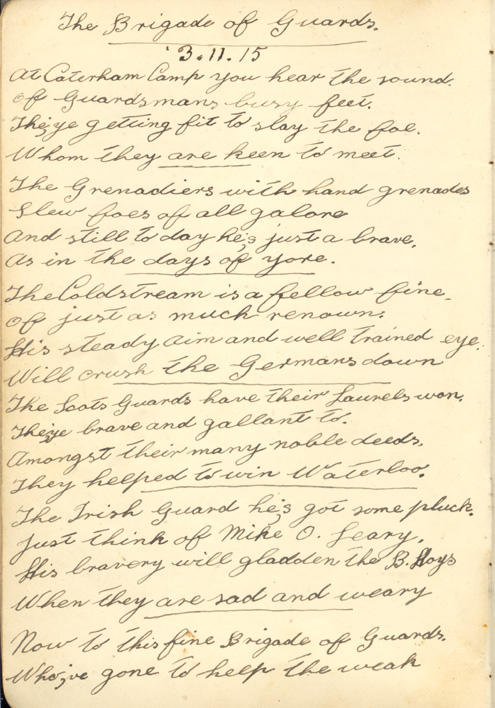 The Brigade of Guards.
3.11.15
At Caterham Camp you hear the sound.
of Guardsmans busy feet.
They;e getting fit to slay the foe.
Whom they are keen to meet.
The Grenadiers with hand grenades
Slew foes of all galore
And still to day he;s just a brave,
As in the days of yore.
The Coldstream is a fellow fine.
of just as much renown.
His steady aim and well trained eye.
Will crush the Germans down
The Scots Guards have their Laurels won,
They;e brave and gallant to.
Amongst their many noble deeds,
They helped to win Waterloo.
The Irish Guard he;s got some pluck.
Just think of Mike O. Leary,
His bravery will gladden the B. Hoys
When they are sad and weary
Now to this fine Brigade of Guards.
Who;ve gone to help the weak